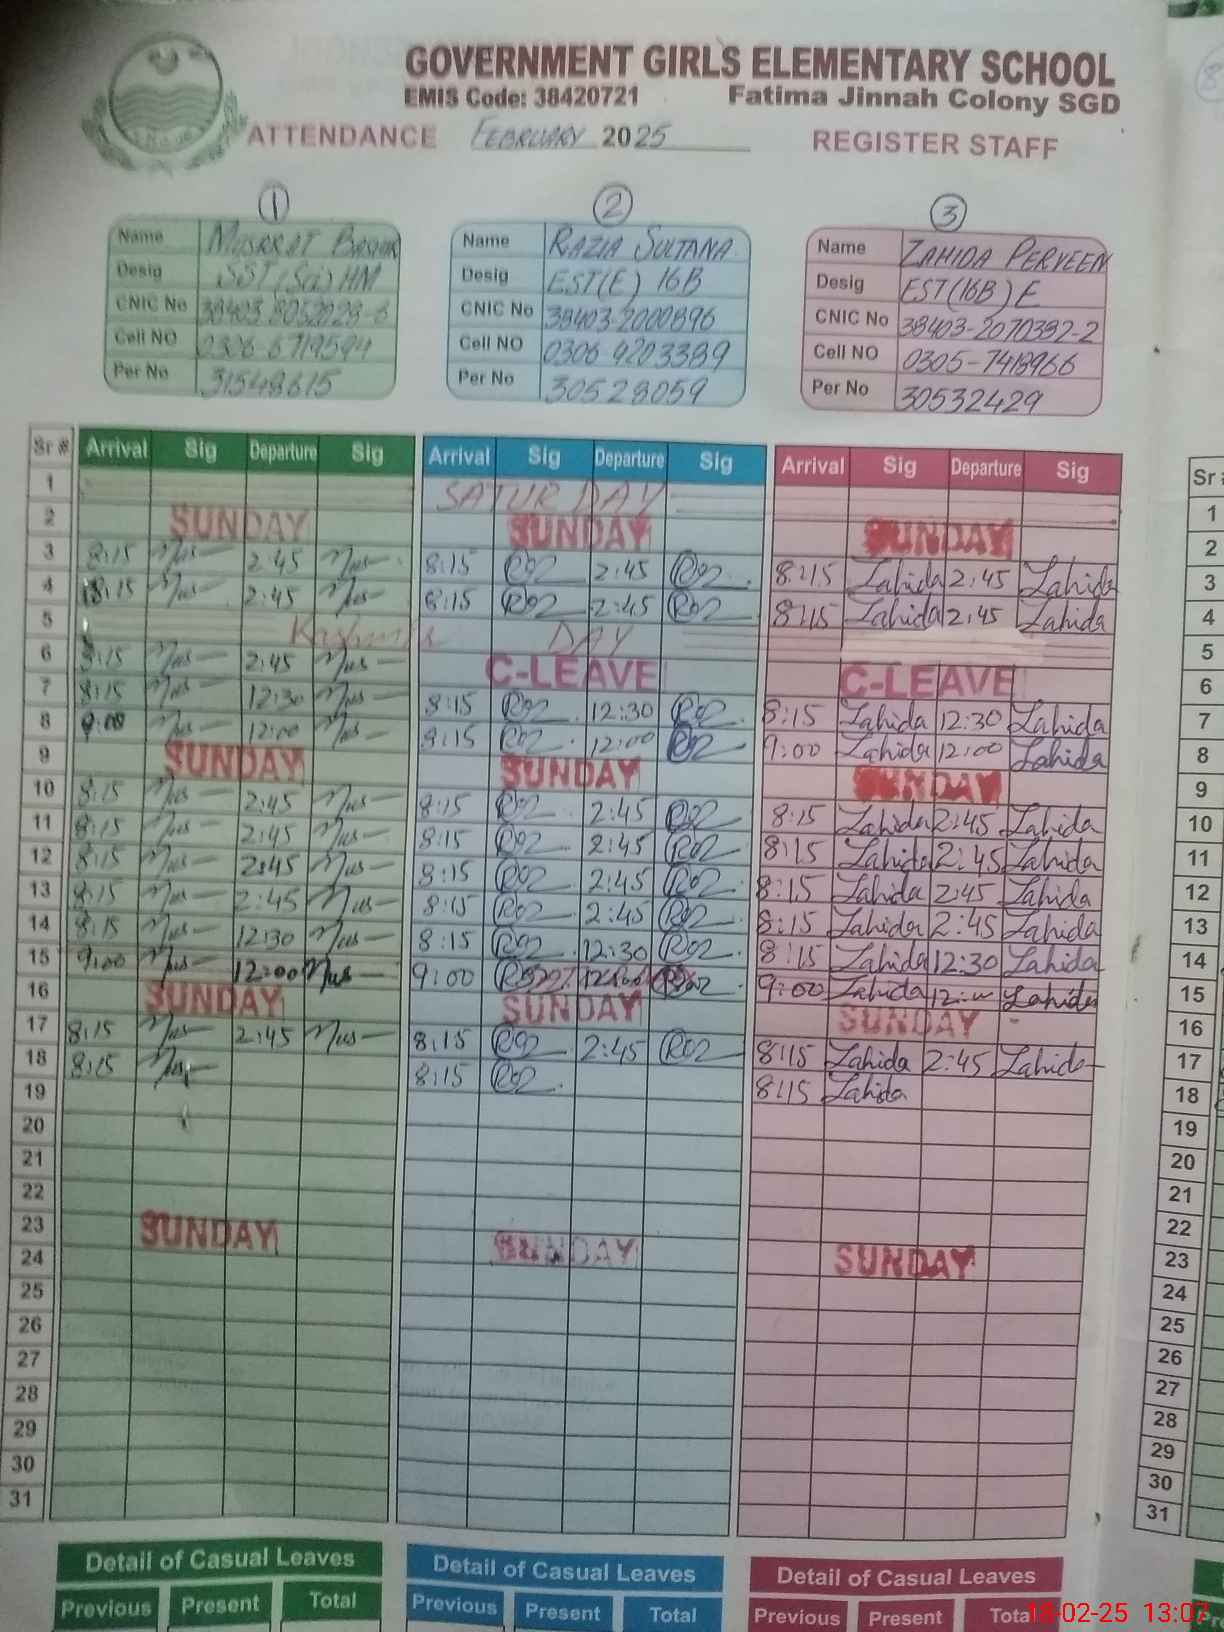 GOVERNMENT GIRLS ELEMENTARY SCHOOL
EMIS Code: 38420721 Fatima Jinnah Colony SGD
ATTENDANCE FEBRUARY 2025 REGISTER STAFF
① ② ③
Name MUSRRAT BASHIR Name RAZIA SULTANA Name ZAHIDA PERVEEN
Desig SST(Sci) HM Desig EST(E) 16B Desig EST(16B) E
CNIC No CNIC No 38403-2000896 CNIC No 38403-2070382-2
Cell NO 0306-6719594 Cell NO 0306 4203389 Cell NO 0305-7418966
Per No 31548615 Per No 30528059 Per No 30532429
Sr # Arrival Sig Departure Sig Arrival Sig Departure Sig Arrival Sig Departure Sig Sr
1 SATURDAY 1
2 SUNDAY SUNDAY SUNDAY 2
3 8:15 Mus 2:45 Mus 8:15 2:45 8:15 Zahida 2:45 Zahida 3
4 8:15 Mus 2:45 Mus 8:15 2:45 8:15 Zahida 2:45 Zahida 4
5 Kashmir DAY 5
6 8:15 Mus 2:45 Mus C-LEAVE C-LEAVE 6
7 8:15 Mus 12:30 Mus 8:15 12:30 8:15 Zahida 12:30 Zahida 7
8 9:00 Mus 12:00 Mus 12:00 9:00 Zahida 12:00 Zahida 8
9 SUNDAY SUNDAY SUNDAY 9
10 8:15 Mus 2:45 Mus 8:15 2:45 8:15 Zahida 2:45 Zahida 10
11 8:15 Mus 2:45 Mus 8:15 2:45 8:15 Zahida 2:45 Zahida 11
12 8:15 Mus 2:45 Mus 8:15 2:45 8:15 Zahida 2:45 Zahida 12
13 8:15 Mus 2:45 Mus 8:15 2:45 8:15 Zahida 2:45 Zahida 13
14 8:15 Mus 12:30 Mus 8:15 12:30 8:15 Zahida 12:30 Zahida 14
15 9:00 Mus 12:00 Mus 9:00 9:00 Zahida Zahida 15
16 SUNDAY SUNDAY SUNDAY 16
17 8:15 Mus 2:45 Mus 8:15 2:45 8:15 Zahida 2:45 Zahida 17
18 8:15 Mus 8:15 8:15 Zahida 18
19 19
20 20
21 21
22 22
23 SUNDAY SUNDAY SUNDAY 23
24 24
25 25
26 26
27 27
28 28
29 29
30 30
31 31
Detail of Casual Leaves Detail of Casual Leaves Detail of Casual Leaves
Previous Present Total Previous Present Total Previous Present Total
18-02-25 13:07